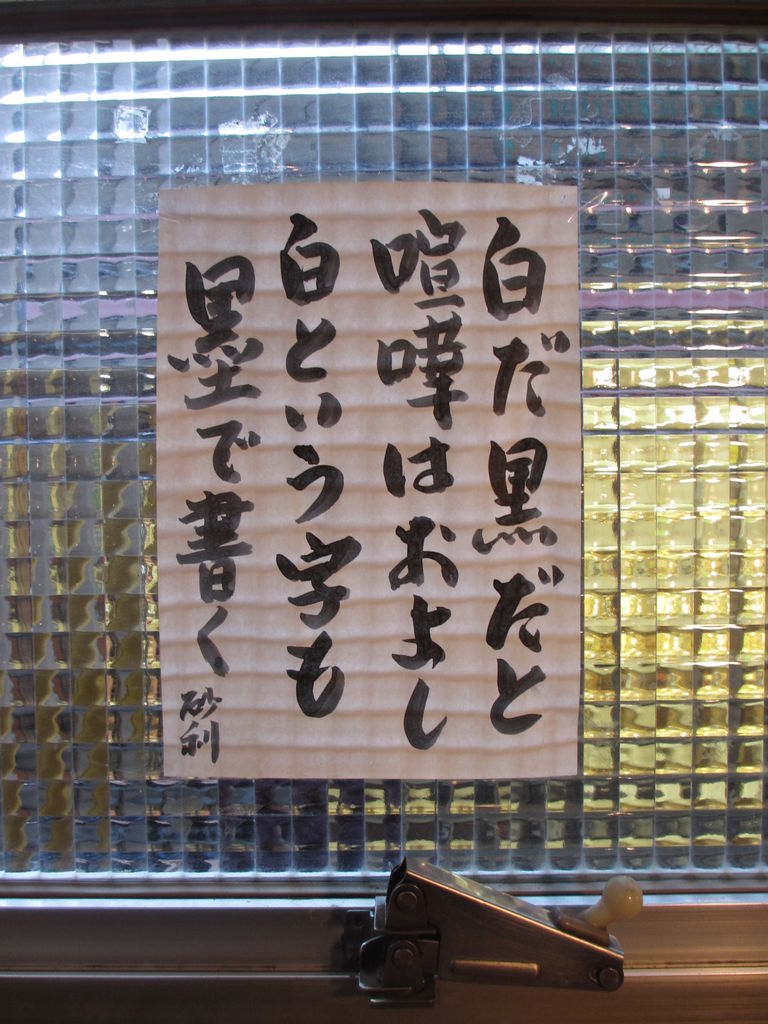 白だ黒だと
喧嘩はおよし
白という字も
墨で書く
砂利